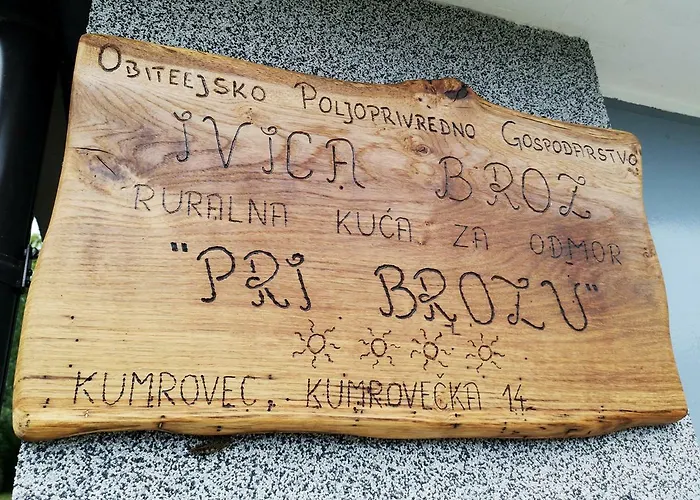 OBITELJSKO POLJOPRIVREDNO GOSPODARSTVO
IVICA BROZ
RURALNA KUĆA ZA ODMOR
"PRI BROZU"
KUMROVEC, KUMROVEČKA 14